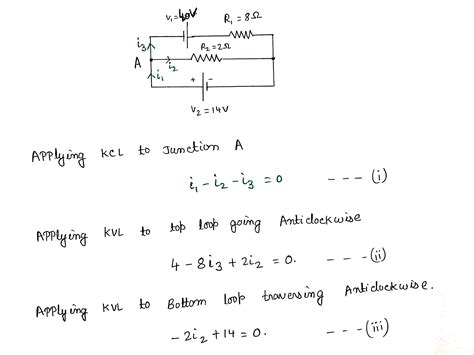 V₁=40V
R₁=8Ω
i₃
R₂=2Ω
A
i₂
i₁
+ -
V₂=14V
Applying KCL to Junction A
i₁-i₂-i₃=0 ---(i)
Applying KVL to top loop going Anticlockwise
4-8i₃+2i₂=0. ---(ii)
Applying KVL to Bottom loop traversing Anticlockwise.
-2i₂+14=0. ---(iii)